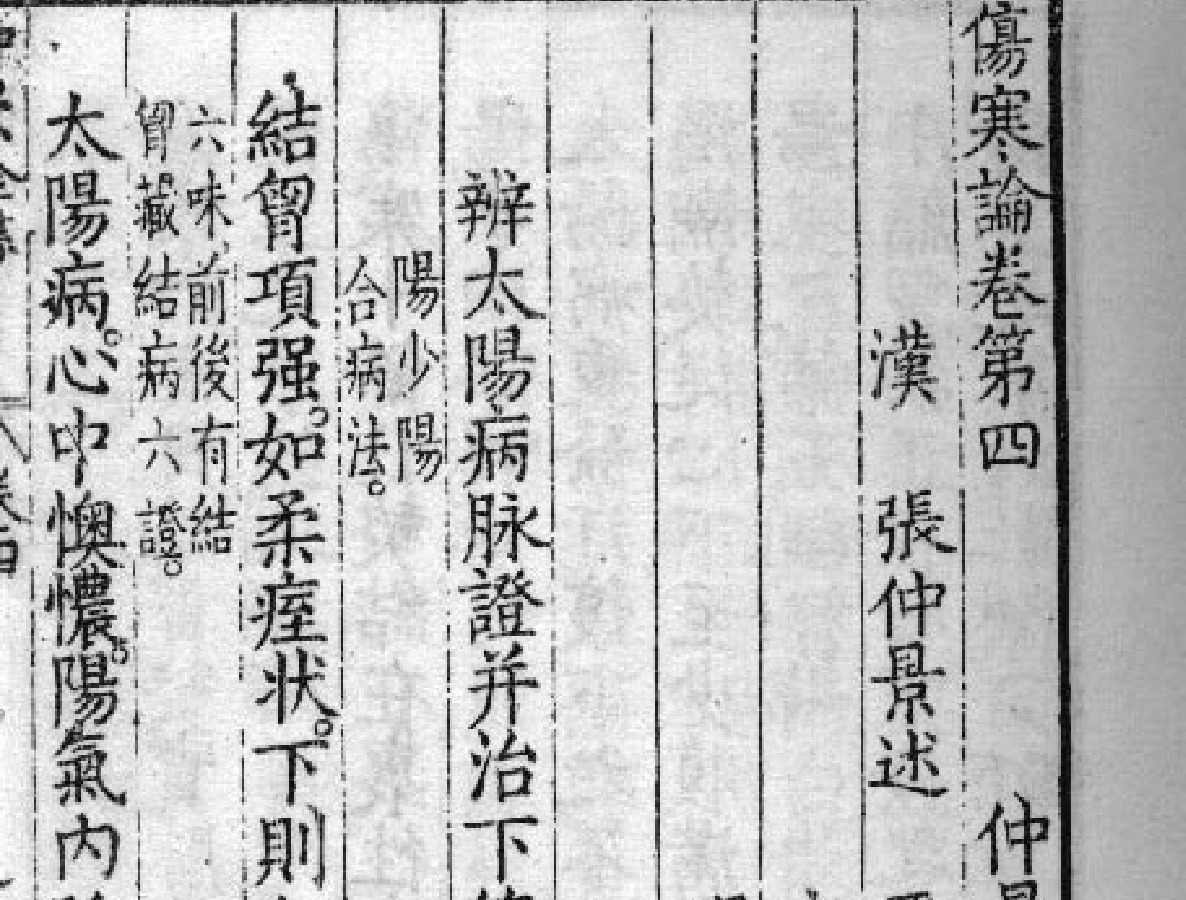 傷寒論卷第四　仲
漢　張仲景述
辨太陽病脉證并治下
陽少陽
合病法。
結胷項强。如柔痓状。下則
六味前後有結
胷藏結病六證。
太陽病。心中懊憹。陽氣內